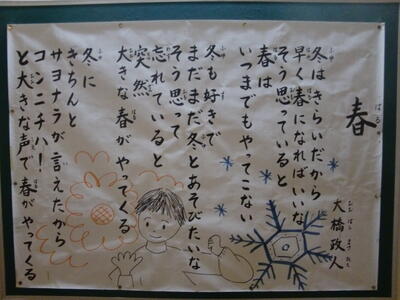 春
大橋政人
冬はきらいだから
早く春になればいいな
そう思っていると
春は
いつまでもやってこない
冬も好きで
まだまだ冬とあそびたいな
そう思って
忘れていると
突然
大きな春がやってくる
冬に
きちんと
サヨナラが言えたから
コンニチハ!
と大きな声で春がやってくる